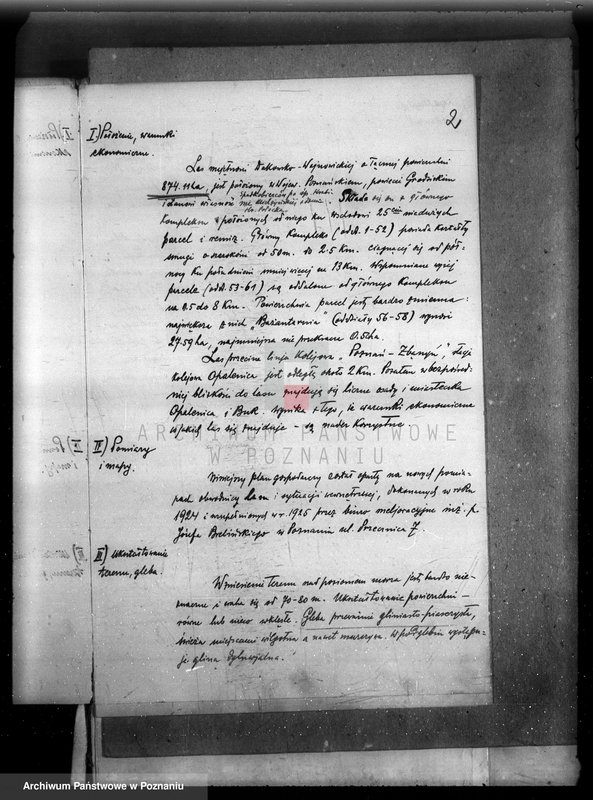 2
I) Położenie, warunki
ekonomiczne.
Las majętności Dakowsko-Wojnowickiej o łącznej powierzchni
874.11 ha, jest położony w Wojew. Poznańskiem, powiecie Grodziskim
i stanowi własność
Składa się on z głównego
kompleksu i położonych od niego ku wschodowi 25 mniejszych
parcel i remiz. Główny kompleks (oddz. 1-52) posiada kształty
smugi o szerokości od 50 m. do 2.5 km. ciągnącej się od pół-
nocy ku południowi mniej więcej na 13 km. Wspomniane wyżej
parcele (oddz. 53-61) są oddalone od głównego kompleksu
na 0.5 do 8 km. Powierzchnia parcel jest bardzo zmienna:
największa z nich "Bażanternia" (oddziały 56-58) wynosi
27.59 ha, najmniejsza nie przekracza 0.5 ha.
Las przecina linja kolejowa "Poznań - Zbąszyń", stacja
kolejowa Opalenica jest odległą około 2 km. Pozatem w bezpośred-
niej bliskości do lasu znajdują się liczne osady i miasteczka
Opalenica i Buk. Wynika z tego, że warunki ekonomiczne
w jakich las się znajduje - są nader korzystne.
ARCHIWUM PAŃSTWOWE
W POZNANIU
II) Pomiary
i mapy.
Niniejszy plan gospodarczy został oparty na nowych pomia-
rach obwodnicy lasu i sytuacji wewnętrznej, dokonanych w roku
1924 i uzupełnionych w r. 1925 przez biuro meljoracyjne inż. p.
Józefa Bielińskiego w Poznaniu ul. Przecznica 7.
III) Ukształtowanie
terenu, gleba.
Wzniesienie terenu nad poziomem morza jest bardzo nie-
znaczne i waha się od 70-80 m. Ukształtowanie powierzchni -
równe lub nieco wklęsłe. Gleba przeważnie gliniasto-piaszczysta,
świeża miejscami wilgotna a nawet murszowa. W podglebiu występu-
je glina dyluwjalna.
Archiwum Państwowe w Poznaniu